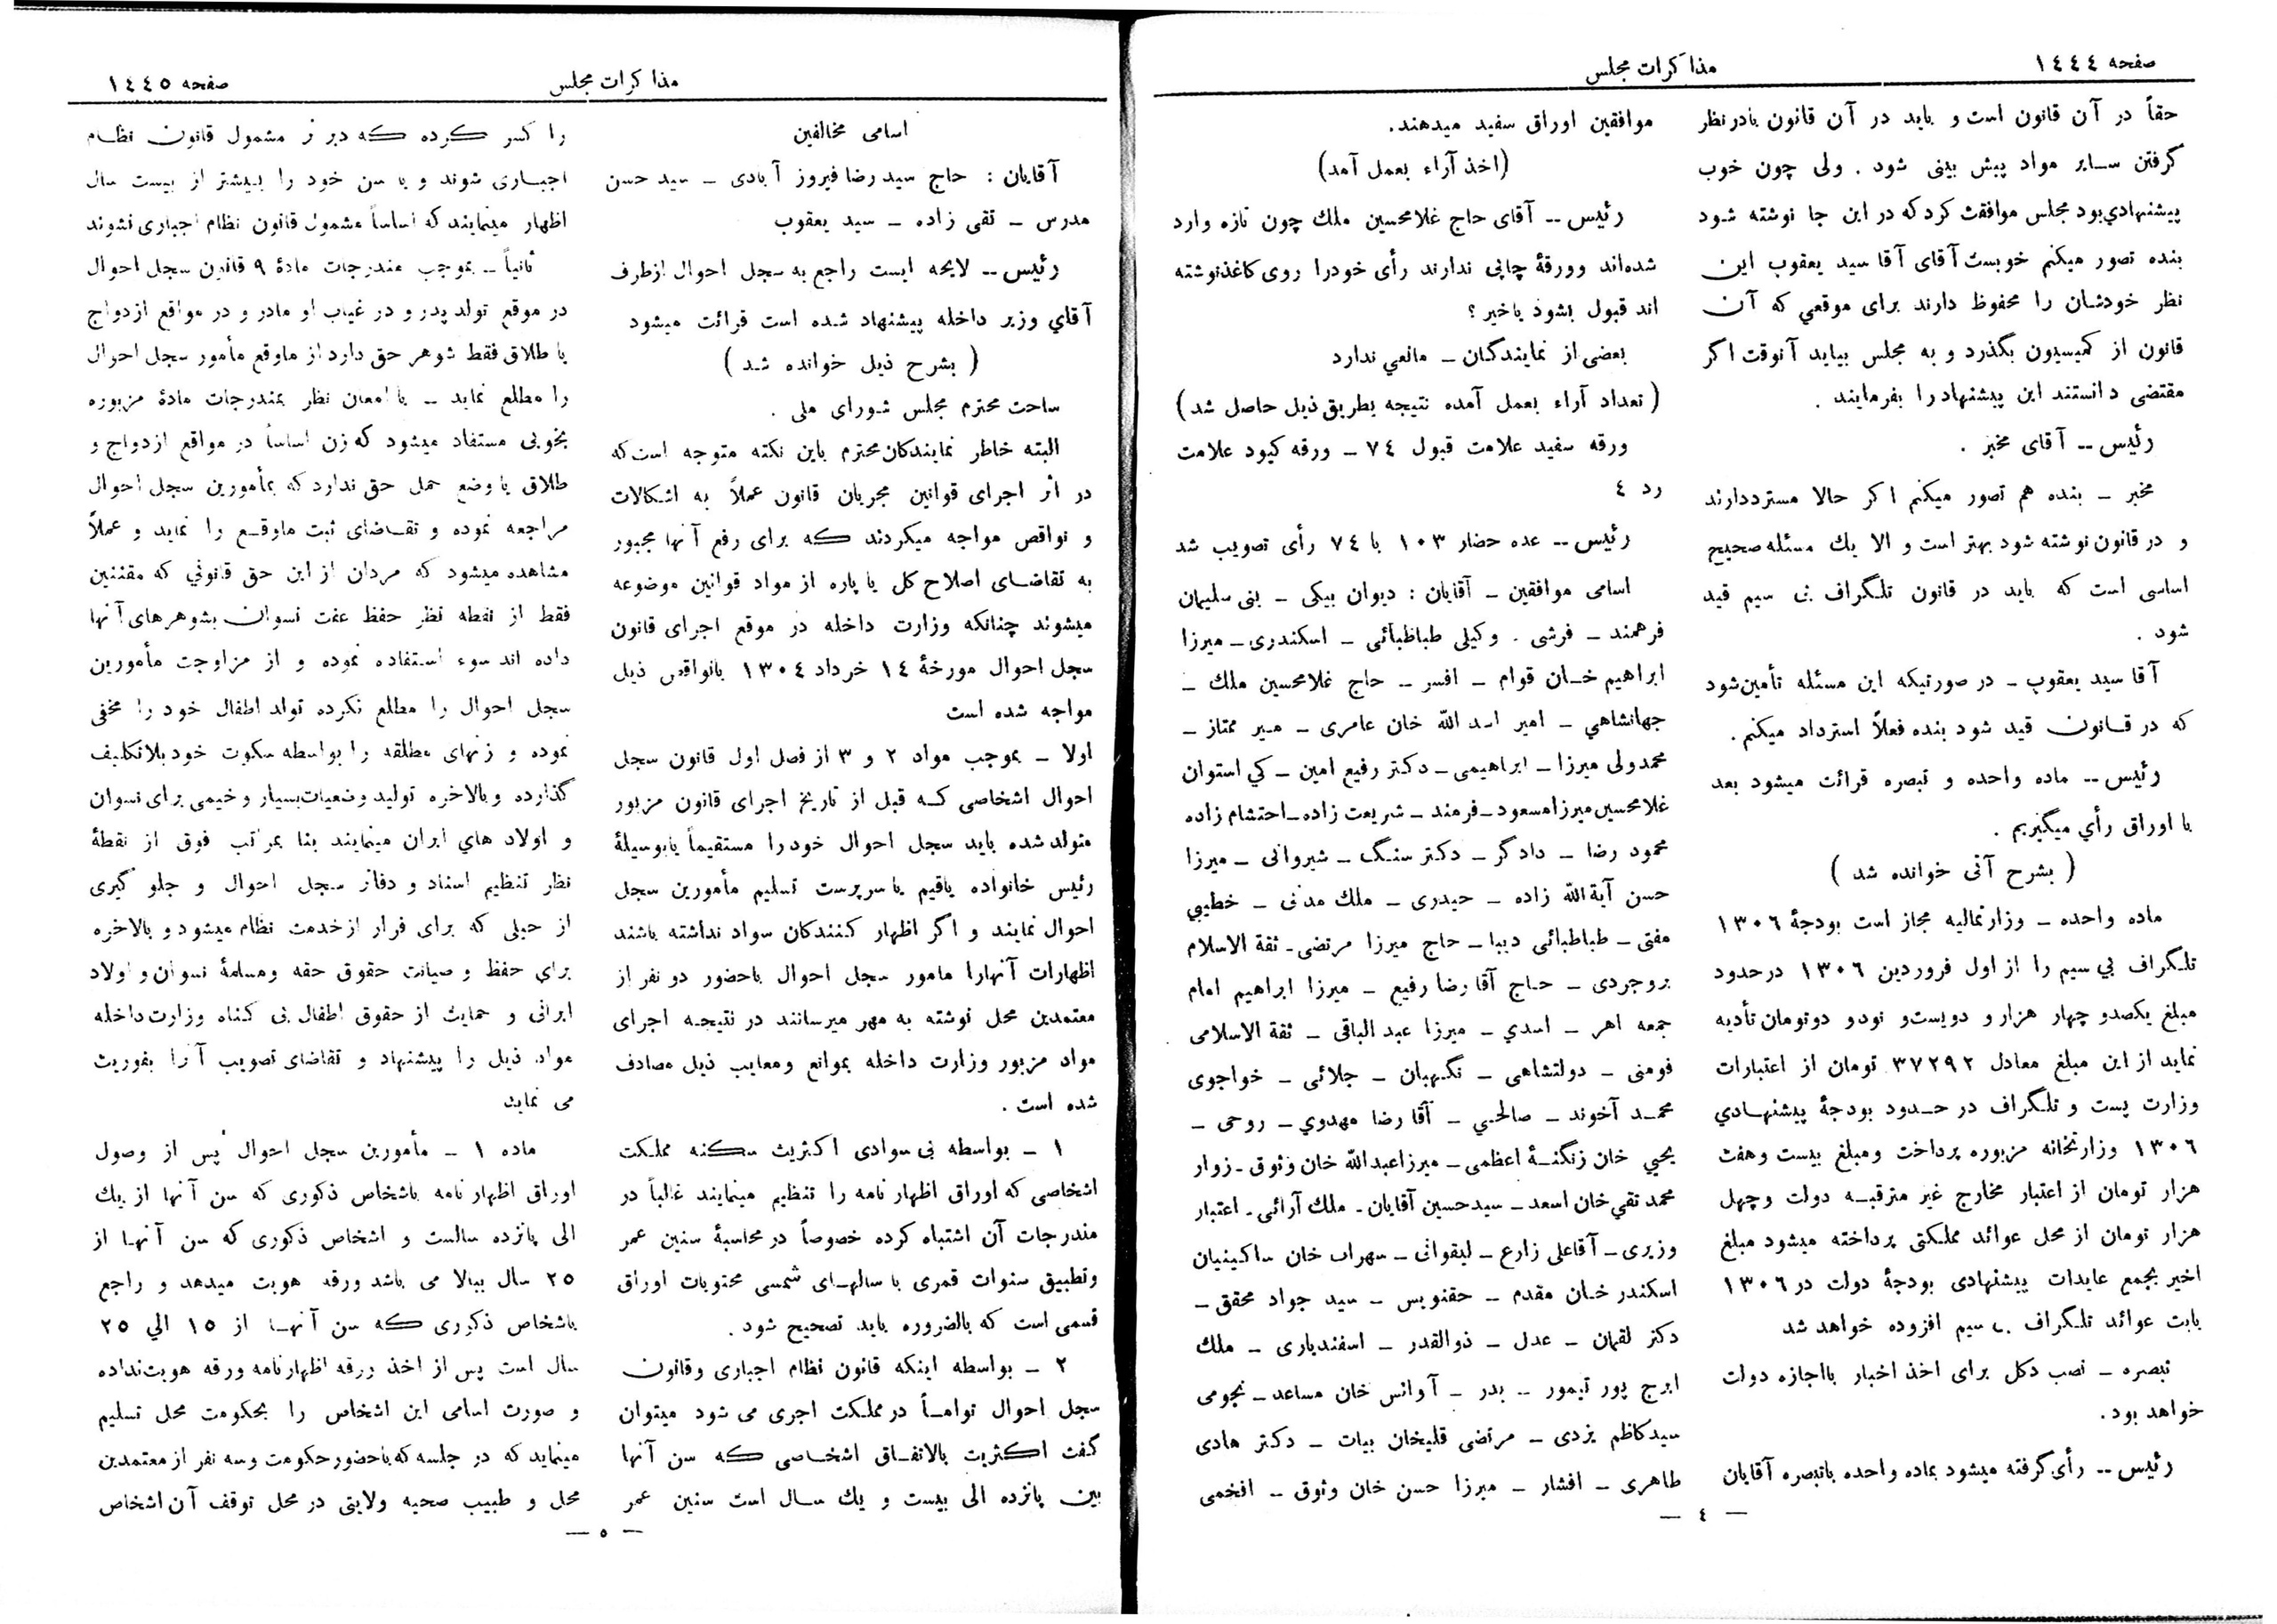 صفحه ١٤٤٤
مذاکرات مجلس
حقاً در آن قانون است و باید در آن قانون بادرنظر
گرفتن سایر مواد پیش بینی شود . ولی چون خوب
پیشنهادی‌بود مجلس موافقت کرد که در این جا نوشته شود
بنده تصور میکنم خوبست آقای آقا سید یعقوب این
نظر خودشان را محفوظ دارند برای موقعی که آن
قانون از کمیسیون بگذرد و به مجلس بیاید آنوقت اگر
مقتضی دانستند این پیشنهاد را بفرمایند .
رئیس -- آقای مخبر .
مخبر - بنده هم تصور میکنم اگر حالا مسترددارند
و در قانون نوشته شود بهتر است و الا یك مسئله صحیح
اساسی است که باید در قانون تلگراف بی سیم قید
شود .
آقا سید یعقوب - در صورتیکه این مسئله تأمین‌شود
که در قانون قید شود بنده فعلاً استرداد میکنم .
رئیس -- ماده واحده و تبصره قرائت میشود بعد
با اوراق رأي میگیریم .
( بشرح آتی خوانده شد )
ماده واحده - وزارتمالیه مجاز است بودجهٔ ١٣٠٦
تلگراف بی سیم را از اول فروردین ١٣٠٦ درحدود
مبلغ یکصدو چهار هزار و دویست‌و نودو دوتومان‌تأدیه
نماید از این مبلغ معادل ٣٧٢٩٢ تومان از اعتبارات
وزارت پست و تلگراف در حدود بودجهٔ پیشنهادي
١٣٠٦ وزارتخانه مزبوره پرداخت ومبلغ بیست وهفت
هزار تومان از اعتبار مخارج غیر مترقبه دولت وچهل
هزار تومان از محل عوائد مملکتی پرداخته میشود مبلغ
اخیر بجمع عایدات پیشنهادی بودجهٔ دولت در ١٣٠٦
بابت عوائد تلگراف بی سیم افزوده خواهد شد
تبصره - نصب دکل برای اخذ اخبار بااجازه دولت
خواهد بود.
رئیس -- رأی‌گرفته میشود بماده واحده باتبصره آقایان
موافقین اوراق سفید میدهند.
(اخذ آراء بعمل آمد)
رئیس -- آقای حاج غلامحسین ملك چون تازه وارد
شده‌اند وورقهٔ چاپی ندارند رأی خودرا روی کاغذنوشته
اند قبول بشود یاخیر ؟
بعضی از نمایندگان - مانعي ندارد
( تعداد آراء بعمل آمده نتیجه بطریق ذیل حاصل شد )
ورقه سفید علامت قبول ٧٤ - ورقه کبود علامت
رد ٤
رئیس -- عده حضار ١٠٣ با ٧٤ رأی تصویب شد
اسامی موافقین - آقایان : دیوان بیکی - بنی سلیمان
فرهمند - فرشی . وکیلی طباطبائی - اسکندری - میرزا
ابراهیم خان قوام - افسر - حاج غلامحسین ملك -
جهانشاهي - امیر اسد الله خان عامری - میر ممتاز -
محمدولی میرزا - ابراهیمی - دکتر رفیع امین - کي استوان
غلامحسین‌میرزامسعود-فرمند - شریعت زاده-احتشام زاده
محمود رضا - دادگر - دکتر سنگ - شیروانی - میرزا
حسن آیةالله زاده - حیدری - ملك مدنی - خطیبي
مفتی - طباطبائی دیبا - حاج میرزا مرتضی- ثقة الاسلام
بروجردی - حاج آقا رضا رفیع - میرزا ابراهیم امام
جمعه اهر - اسدي - میرزا عبد الباقی - ثقة الاسلامی
فومنی - دولتشاهی - نگهبان - جلائی - خواجوی
محمد آخوند - صالحي - آقا رضا مهدوي - روحی -
یحیي خان زنگنهٔ اعظمی - میرزاعبدالله خان وثوق - زوار
محمد تقي خان اسعد - سیدحسین آقایان - ملك آرائی - اعتبار
وزیری - آقاعلی زارع - لیقوانی - سهراب خان ساکینیان
اسکندر خان مقدم - حقنویس - سید جواد محقق -
دکتر لقمان - عدل - ذوالقدر - اسفندیاری - ملك
ایرج پور تیمور - بدر - آوانس خان مساعد - نجومی
سیدکاظم یزدی - مرتضی قلیخان بیات - دکتر هادی
طاهری - افشار - میرزا حسن خان وثوق - افخمی
— ٤ —
مذاکرات مجلس
صفحه ١٤٤٥
اسامی مخالفین
آقایان : حاج سید رضا فیروز آبادی - سید حسن
مدرس - تقی زاده - سید یعقوب
رئیس -- لایحه ایست راجع به سجل احوال ازطرف
آقاي وزیر داخله پیشنهاد شده است قرائت میشود
( بشرح ذیل خوانده شد )
ساحت محترم مجلس شورای ملی .
البته خاطر نمایندکان‌محترم باین نکته متوجه است‌که
در اثر اجرای قوانین مجریان قانون عملاً به اشکالات
و نواقص مواجه میکردند که برای رفع آنها مجبور
به تقاضای اصلاح کل یا پاره از مواد قوانین موضوعه
میشوند چنانکه وزارت داخله در موقع اجرای قانون
سجل احوال مورخهٔ ١٤ خرداد ١٣٠٤ بانواقص ذیل
مواجه شده است
اولا - بموجب مواد ٢ و ٣ از فصل اول قانون سجل
احوال اشخاصی که قبل از تاریخ اجرای قانون مزبور
متولد شده باید سجل احوال خود را مستقیماً یابوسیلهٔ
رئیس خانواده یاقیم یا سرپرست تسلیم مأمورین سجل
احوال نمایند و اگر اظهار کنندکان سواد نداشته باشند
اظهارات آنهارا مامور سجل احوال باحضور دو نفر از
معتمدین محل نوشته به مهر میرسانند در نتیجه اجرای
مواد مزبور وزارت داخله بموانع ومعایب ذیل مصادف
شده است .
١ - بواسطه بی سوادی اکثریت سکنه مملکت
اشخاصی که اوراق اظهار نامه را تنظیم مینمایند غالباً در
مندرجات آن اشتباه کرده خصوصاً در محاسبهٔ سنین عمر
وتطبیق سنوات قمری با سالهای شمسی محتویات اوراق
قسمی است که بالضروره باید تصحیح شود .
٢ - بواسطه اینکه قانون نظام اجباری وقانون
سجل احوال توامأ در مملکت اجری می شود میتوان
گفت اکثریت بالاتفاق اشخاصی که سن آنها
بین پانزده الی بیست و یك سال است سنین عمر
را کسر کرده که دیرتر مشمول قانون نظام
اجباری شوند و یا سن خود را بیشتر از بیست سال
اظهار مینمایند که اساساً مشمول قانون نظام اجباری نشوند
ثانیاً - بموجب مندرجات مادهٔ ٩ قانون سجل احوال
در موقع تولد پدر و در غیاب او مادر و در مواقع ازدواج
یا طلاق فقط شوهر حق دارد از ماوقع مأمور سجل احوال
را مطلع نماید - با امعان نظر بمندرجات مادهٔ مزبوره
بخوبی مستفاد میشود که زن اساساً در مواقع ازدواج و
طلاق یا وضع حمل حق ندارد که بمأمورین سجل احوال
مراجعه نموده و تقاضای ثبت ماوقع را نماید و عملاً
مشاهده میشود که مردان از این حق قانونی که مقننین
فقط از نقطه نظر حفظ عفت نسوان بشوهرهای آنها
داده اند سوء استفاده نموده و از مزاوجت مأمورین
سجل احوال را مطلع نکرده تولد اطفال خود را مخفی
نموده و زنهای مطلقه را بواسطه سکوت خود بلاتکلیف
گذارده و بالاخره تولید وضعیات‌بسیار وخیمی برای نسوان
و اولاد هاي ایران مینمایند بنا بمراتب فوق از نقطهٔ
نظر تنظیم اسناد و دفاتر سجل احوال و جلو گیری
از حیلی که برای فرار از خدمت نظام میشود و بالاخره
برای حفظ و صیانت حقوق حقه ومسلمهٔ نسوان و اولاد
ایرانی و حمایت از حقوق اطفال بی کناه وزارت‌داخله
مواد ذیل را پیشنهاد و تقاضای تصویب آنرا بفوریت
می نماید
ماده ١ - مأمورین سجل احوال پس از وصول
اوراق اظهار نامه باشخاص ذکوری که سن آنها از یك
الی پانزده سالست و اشخاص ذکوری که سن آنها از
٢٥ سال ببالا می باشد ورقه هویت میدهد و راجع
باشخاص ذکوری که سن آنها از ١٥ الي ٢٥
سال است پس از اخذ ورقه اظهارنامه ورقه هویت‌نداده
و صورت اسامی این اشخاص را بحکومت محل تسلیم
مینماید که در جلسه که باحضور حکومت وسه نفر از معتمدین
محل و طبیب صحیه ولایتی در محل توقف آن اشخاص
— ٥ —